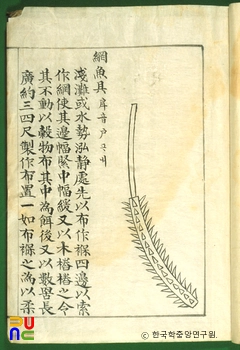 網魚具
淺灘或水勢泓静處先以布作褓四邊以索
作網使其邊幅緊中幅緩又以木橛橛之令
其不動以穀物布其中為餌後又以數罟長
廣約三四尺製作布置一如布褓之為以柔
한국학중앙연구원.